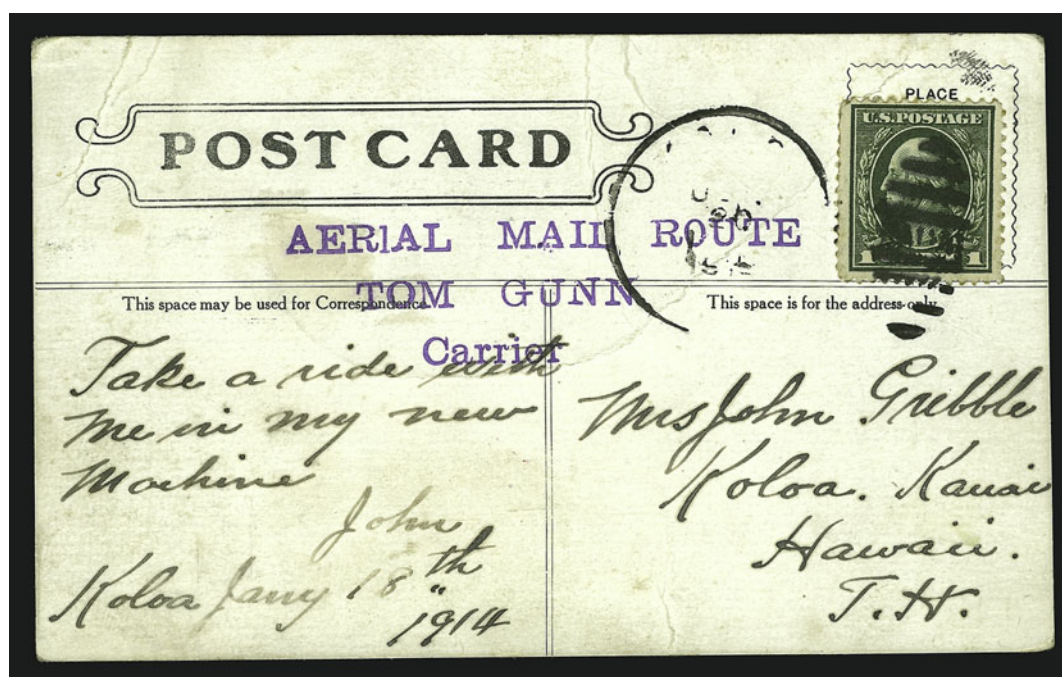 PLACE
U.S. POSTAGE
1 1
POST CARD
AERIAL MAIL ROUTE
TOM GUNN
Carrier
This space may be used for Correspondence.
This space is for the address only.
Take a ride with
me in my new
Machine
John
Koloa Jany 18th
1914
Mrs John Gribble
Koloa. Kauai
Hawaii.
T.H.